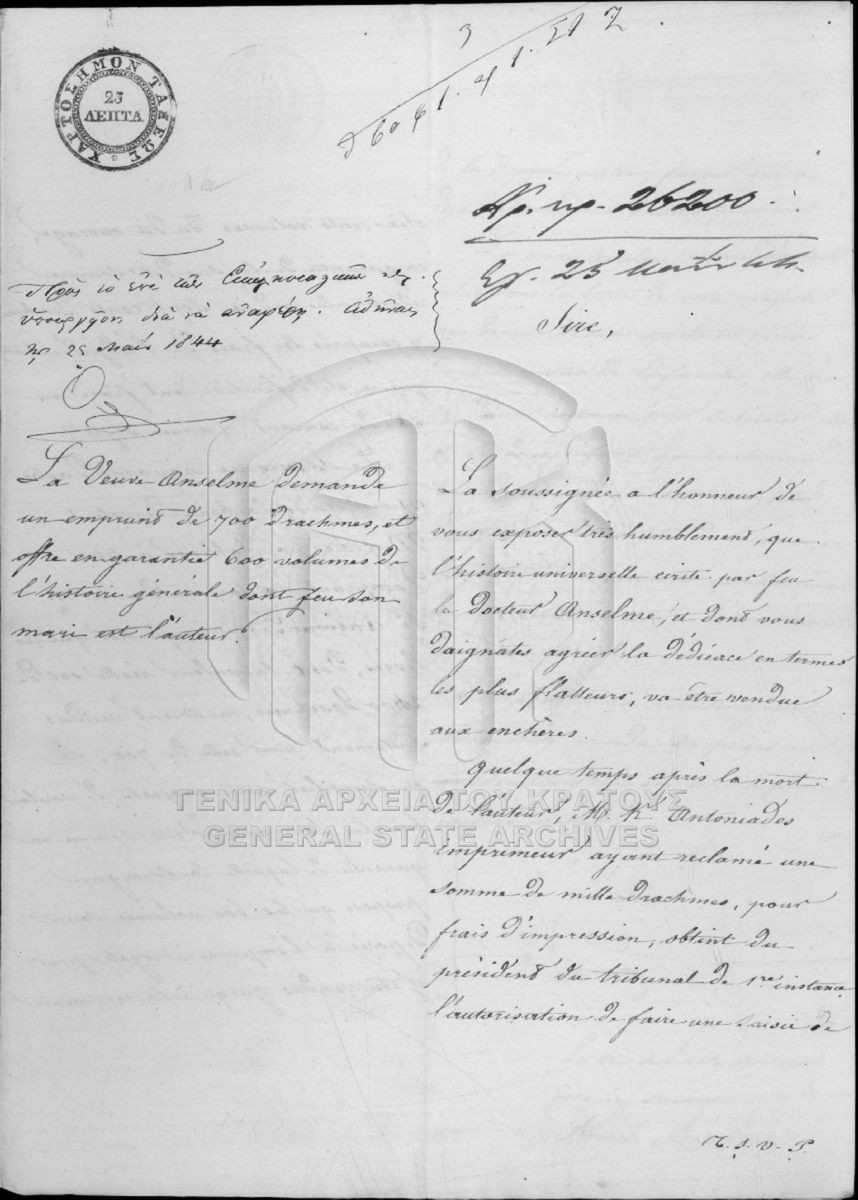 ΧΑΡΤΟΣΗΜΟΝ ΤΑΞΕΩΣ
25
ΛΕΠΤΑ
3
Αρ. πρ. 26200.
25 Μαΐου 44.
Πρὸς τὸ ἐπὶ τῶν Ἐκκλησιαστικῶν
ὑπουργεῖον διὰ νὰ ἀναφέρῃ. Ἀθῆναι
25 Μαΐου 1844
Sire,
La Veuve Anselme demande
un emprunt de 700 drachmes, et
offre en garantie 600 volumes de
l'histoire générale dont feu son
mari est l'auteur.
La soussignée a l'honneur de
vous exposer très humblement, que
l'histoire universelle ecrite par feu
le docteur Anselme, et dont vous
daignâtes agréer la dédicace en termes
les plus flatteurs, va être vendue
aux enchères.
quelque temps après la mort
de l'auteur, M. K. Antoniades
imprimeur ayant reclamé une
somme de mille drachmes, pour
frais d'impression, obtint du
président du tribunal de 1re instance
l'autorisation de faire une saisie de
T. s. v. P.
ΓΕΝΙΚΑ ΑΡΧΕΙΑ ΤΟΥ ΚΡΑΤΟΥΣ
GENERAL STATE ARCHIVES